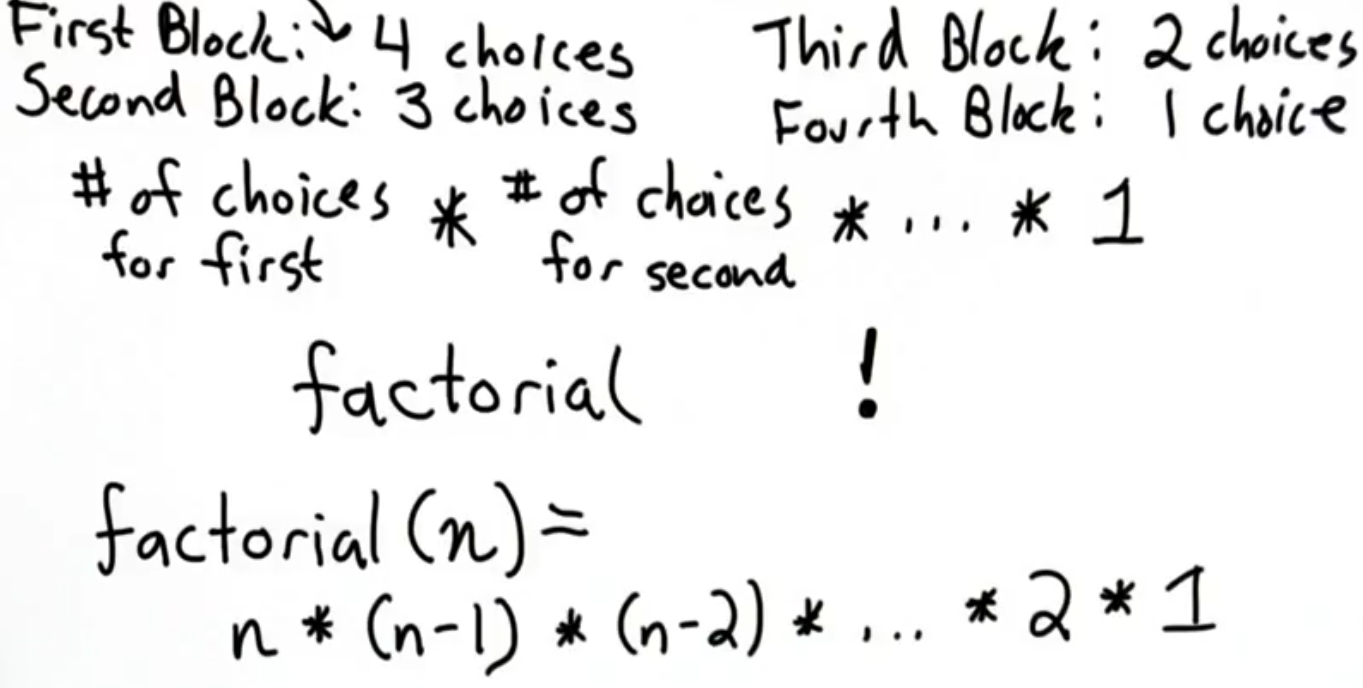 First Block: 4 choices
Second Block: 3 choices
Third Block: 2 choices
Fourth Block: 1 choice
# of choices * # of choices * ... * 1
for first for second
factorial !
factorial (n) =
n * (n-1) * (n-2) * ... * 2 * 1